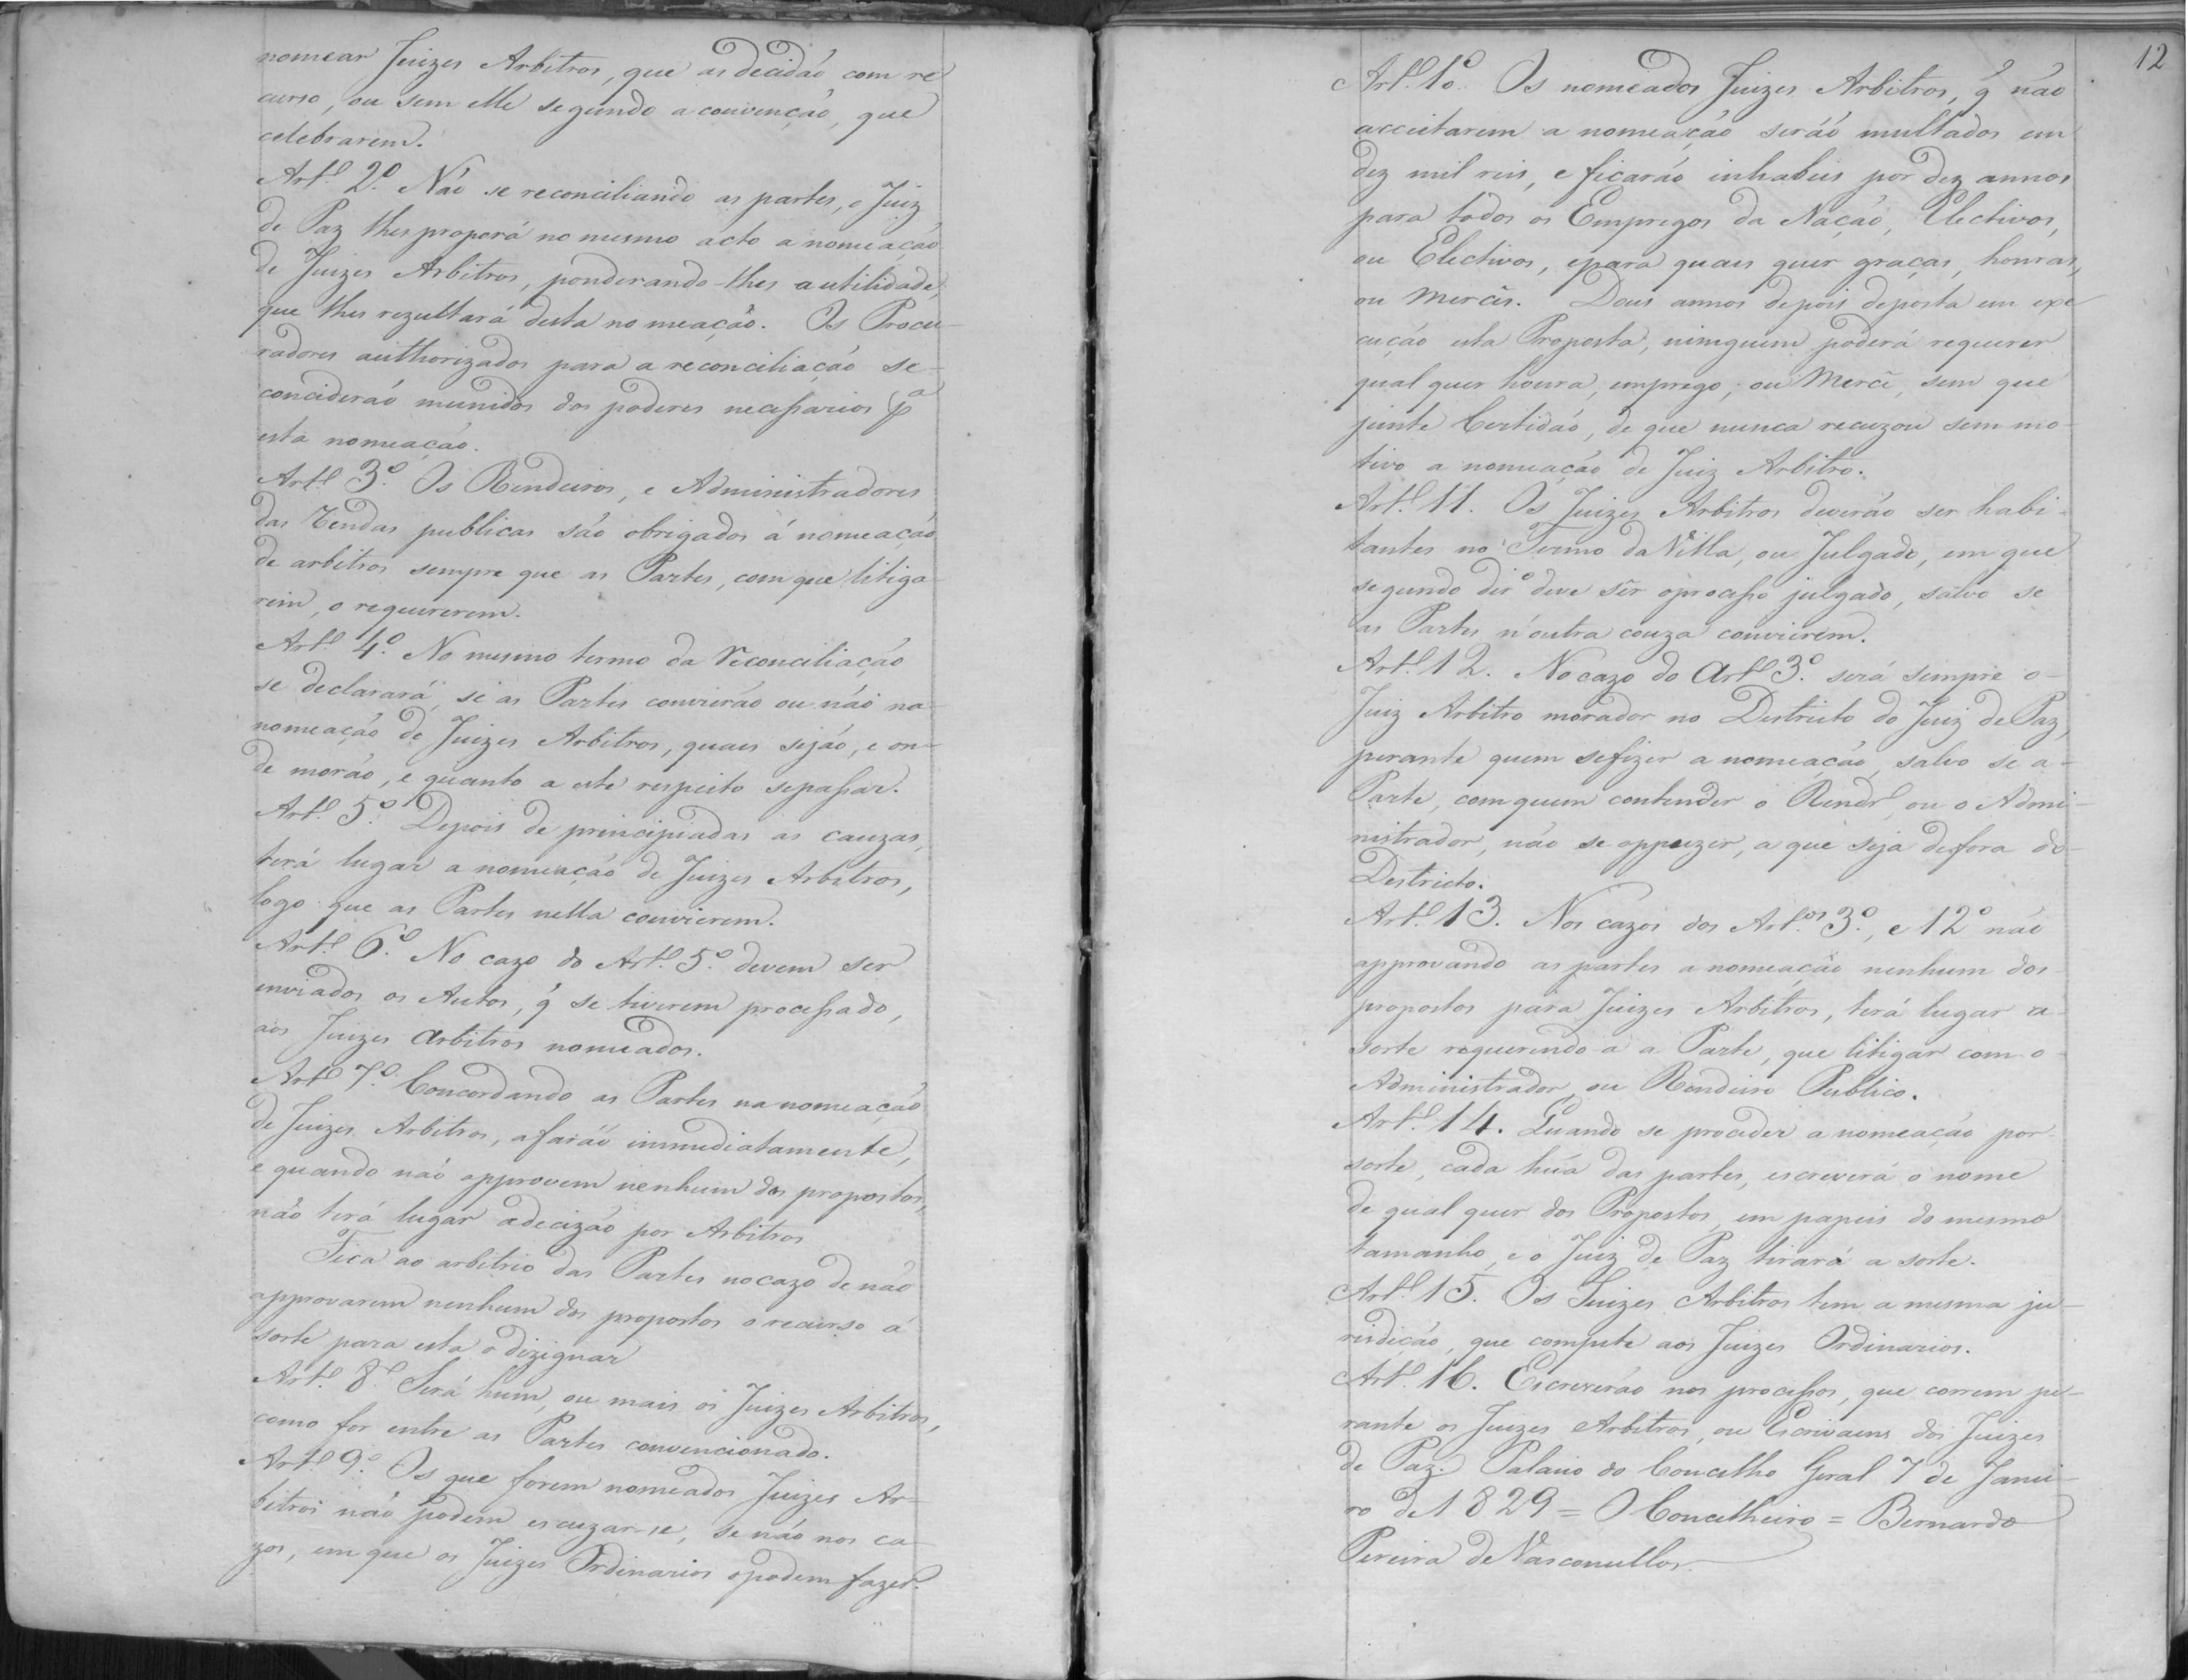 nomear Juizes Arbitros, que as decidaõ com re
curso, ou sem elle segundo a convençaõ, que
celebrarem.
Artº. 2º. Naõ se reconciliando as partes, o Juiz
de Paz lhes proporá no mesmo acto a nomeaçaõ
de Juizes Arbitros, ponderando-lhes a utilidade,
que lhes rezultará desta nomeaçaõ. Os Procu-
radores authorizados para a reconciliaçaõ se-
conciderão munidos dos poderes necessarios pª
esta nomeaçaõ.
Artº. 3º. Os Rendeiros, e Administradores
das Rendas publicas saõ obrigados á nomeaçaõ
de arbitros sempre que as Partes, com que litiga-
rem, o requererem.
Artº. 4º. No mesmo termo da Reconciliaçaõ
se declarará, se as Partes convieraõ ou naõ na
nomeaçaõ de Juizes Arbitros, quaes sejaõ, e on-
de moraõ, e quanto a este respeito se passar.
Artº. 5º. Depois de principiadas as cauzas,
terá lugar a nomeaçaõ de Juizes Arbitros,
logo que as Partes nella convierem.
Artº. 6º. No cazo do Artº. 5º. devem ser
inviados os Autos, q̃ se tiverem processado,
aos Juizes arbitros nomeados.
Artº 7º. Concordando as Partes na nomeaçaõ
de Juizes Arbitros, a faraõ immediatamente,
e quando naõ approvem nenhum dos propostos,
naõ terá lugar a decizaõ por Arbitros
Fica ao arbitrio das Partes no cazo de naõ
approvarem nenhum dos propostos o recurso á
sorte para esta o dizignar
Artº. 8º. Será hum, ou mais os Juizes Arbitros,
como for entre as Partes convencionado.
Artº. 9º. Os que forem nomeados Juizes Ar-
bitros naõ podem escuzar-se, se naõ nos ca-
zos, em que os Juizes Ordinarios o podem fazer.
12
Artº. 10. Os nomeados Juizes Arbitros, q̃ naõ
acceitarem a nomeaçaõ seraõ multados em
dez mil reis, e ficaraõ inhabeis por dez annos
para todos os Empregos da Naçaõ, Electivos,
ou Electivos, e para quaes quer graças, honras,
ou Mercês. Dous annos depois de posta em exe
cuçaõ esta Proposta, ninguem poderá requerer
qual quer honra, emprego, ou Mercê, sem que
junte Certidaõ, de que nunca recuzou sem mo-
tivo a nomeaçaõ de Juiz Arbitro.
Artº. 11. Os Juizes Arbitros deveraõ ser habi-
tantes no Termo da Villa, ou Julgado, em que
segundo dirº deve sêr o processo julgado, salvo se
as Partes n'outra couza convierem.
Artº. 12. No cazo do Artº 3º. será sempre o-
Juiz Arbitro morador no Destricto do Juiz de Paz,
perante quem se fizer a nomeaçaõ, salvo se a-
Parte, com quem contender o Rendrº, ou o Admi-
nistrador, naõ se oppuzer, a que seja de fora do-
Destricto.
Artº. 13. Nos cazos dos Artºs 3º., e 12º naõ
approvando as partes a nomeaçaõ nenhum dos
propostos para Juizes Arbitros, terá lugar a-
sorte requerendo-a a Parte, que litigar com o
Administrador, ou Rendeiro Publico.
Artº. 14. Quando se proceder a nomeaçaõ por-
sorte, cada hũa das partes, escreverá o nome
de qual quer dos Propostos, em papeis do mesmo
tamanho, e o Juiz de Paz tirará a sorte.
Artº. 15. Os Juizes Arbitros tem a mesma ju-
risdiçaõ, que compete aos Juizes Ordinarios.
Artº. 16. Escreveraõ nos processos, que correm pe-
rante os Juizes Arbitros, ou Escrivaens dos Juizes
de Paz. Palacio do Concelho Geral 7 de Janei-
ro de 1829 = O Concelheiro = Bernardo
Pereira de Vasconcellos.